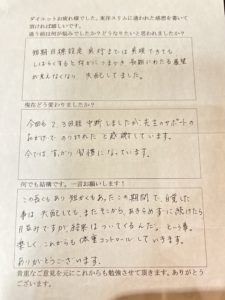 ダイエットお疲れ様でした。東洋スリムに通われた感想を書いて
頂ければ嬉しいです。
通う前は何が悩みでしたか？どうなりたいと思われましたか？
短期目標設定 実行までは実現できても
しばらくすると
長期にわたる展望
が見えなくなり 失敗してました。
現在どう変わりましたか？
今回も2、3回程 中断しましたが、先生のサポートの
おかげで のりきれたと 感謝しています。
今では、すっかり習慣になっています。
何でも結構です。一言お願いします！
この長くもあり 短かくもあったこの期間で、自覚した
事は 失敗しても、またそこから、あきらめずに続けたら
日歩みですが、結果はついてくるんだ。という事。
楽しく、これからも 体重コントロールしていきます。
ありがとうございます。
貴重なご意見を元にこれからも勉強させて頂きます。ありがとう
ございます。